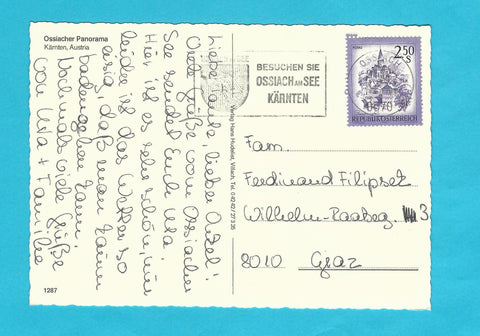 Ossiacher Panorama
Kärnten, Austria
Liebe Tante, lieber Onkel!
Viele Grüße vom Ossiacher
See sendet Euch Uta!
Hier ist es sehr schön, nur
leider ist das Wetter so
daß man kaum
baden gehen kann.
Nochmals viele Grüße
von Uta + Familie
1287
Verlag Hans Hudelist, Villach, Tel. 04242/27335
BESUCHEN SIE
OSSIACH AM SEE
KÄRNTEN
2.50
S
REPUBLIK ÖSTERREICH
Fam.
Ferdinand Filipsek
Wilhelm-Raabeg. 3
8010 Graz